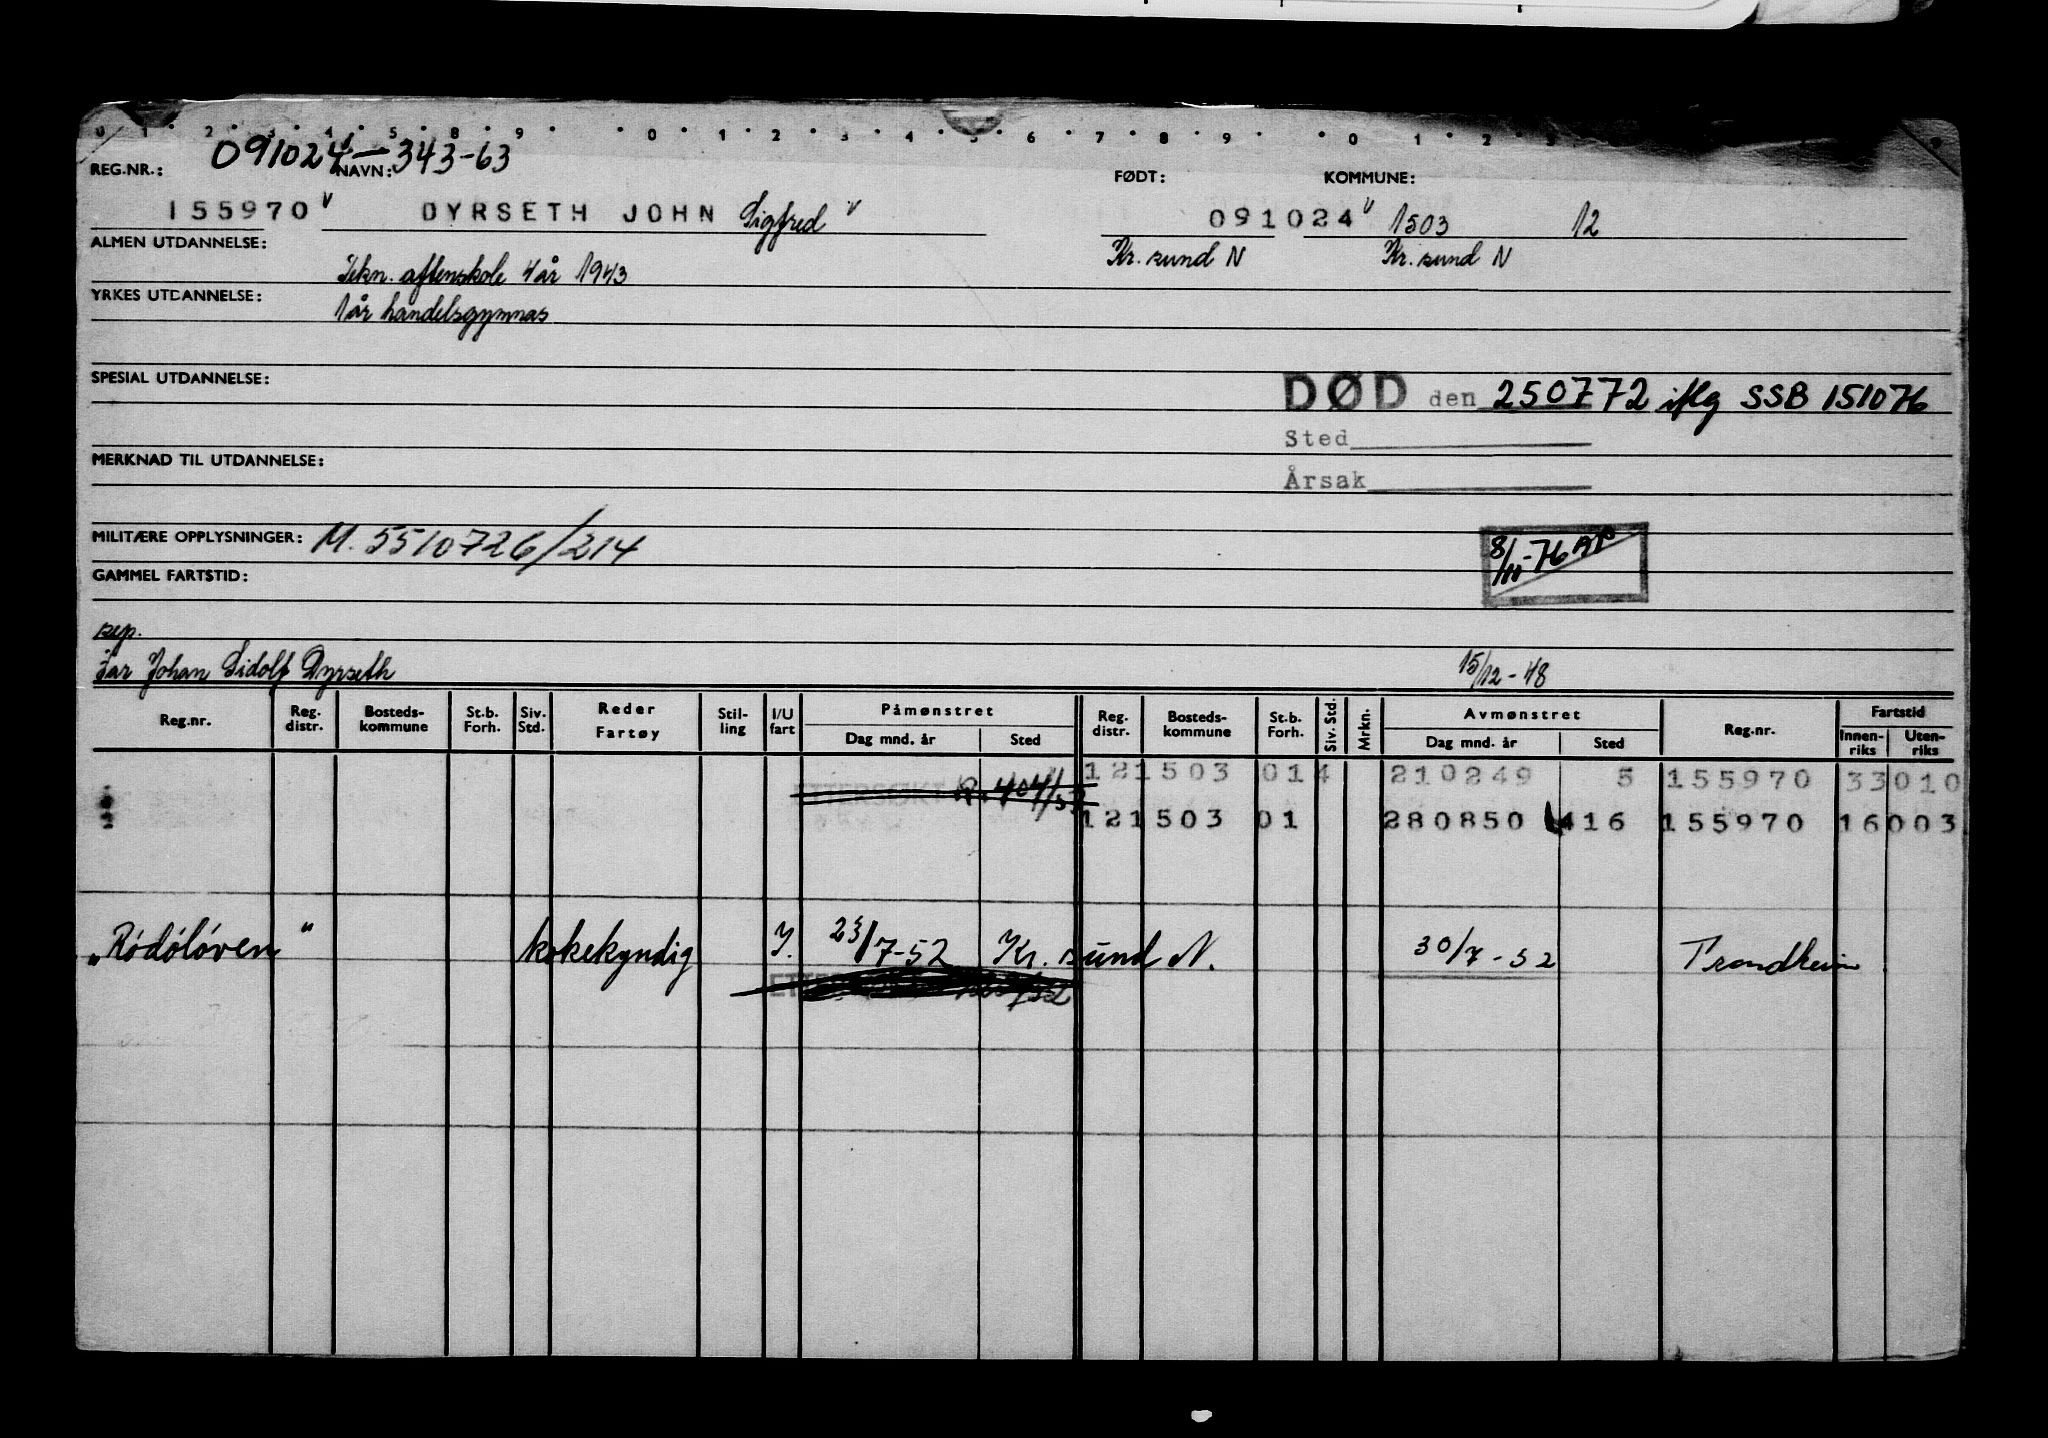 0 1 2 3 4 5 8 9 0 1 2 3 4 5 6 7 8 9 0 1 2
091024-343-63
REG.NR.: NAVN: FØDT: KOMMUNE:
155970 v DYRSETH JOHN Sigfred v 091024 v 1503 12
ALMEN UTDANNELSE: Kr. sund N Kr. sund N
Tekn. aftenskole 4 år 1943
YRKES UTDANNELSE:
1 år handelsgymnas
SPESIAL UTDANNELSE:
DØD den 250772 iflg SSB 151076
Sted
MERKNAD TIL UTDANNELSE:
Årsak
MILITÆRE OPPLYSNINGER: M. 5510726/214
8/11-76
GAMMEL FARTSTID:
sep.
Far Johan Sidolf Dyrseth 15/12-48
Reg.nr. Reg. distr. Bosteds-kommune St.b. Forh. Siv. Std. Reder Fartøy Stil-ling I/U fart Påmønstret Dag mnd. år Sted Reg. distr. Bosteds-kommune St.b. Forh. Siv. Std. Mrkn. Avmønstret Dag mnd. år Sted Reg.nr. Fartstid Innen-riks Uten-riks
ETTERSØKT 121503 014 210249 5 155970 33010
121503 01 280850 416 155970 16003
"Rödölöven" kokekyndig I. 23/7-52 Kr. sund N. 30/7-52 Trondheim